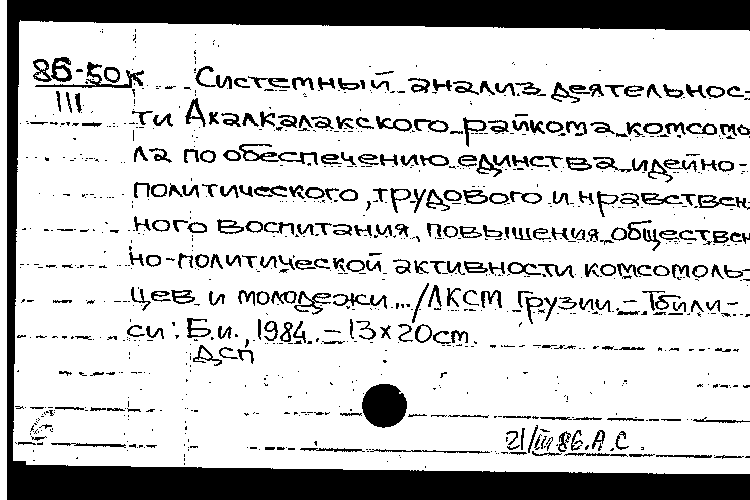 86-50к Системный анализ деятельнос-
III ти Ахалкалакского райкома комсомо
ла по обеспечению единства идейно-
политического, трудового и нравствен
ного воспитания, повышения обществен
но-политической активности комсомоль-
цев и молодежи... / ЛКСМ Грузии. - Тбили-
си: Б.и., 1984. - 13×20cm.
ДСП
21/III 86. А.С.